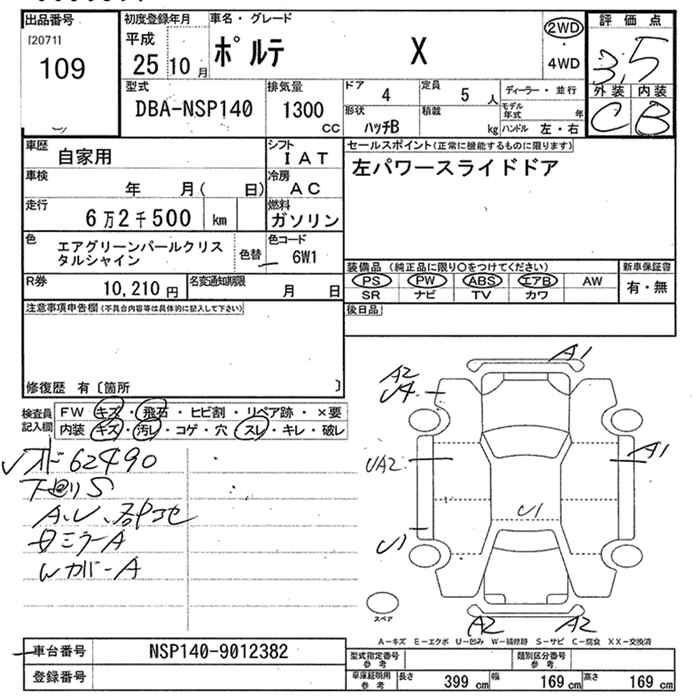 出品番号 初度登録年月 車名・グレード 2WD 評価点
[2071] 平成 ポルテ X ・ 3.5
109 25 10月 4WD 外装 内装
型式 排気量 ドア 4 定員 5 人 ディーラー・並行 C B
DBA-NSP140 1300 cc 形状 ハッチB 積載 kg モデル年式 年
ハンドル 左・右
車歴 自家用 シフト IAT セールスポイント(正常に機能するものに限ります)
車検 年 月( 日) 冷房 AC 左パワースライドドア
走行 6万2千500 km 燃料 ガソリン
色 エアグリーンパールクリスタルシャイン 色替 色コード 6W1
装備品 (純正品に限り○をつけてください) 新車保証書
R券 10,210円 名変通知期限 月 日 PS PW ABS エアB AW 有・無
SR ナビ TV カワ
注意事項申告欄(不具合内容等は具体的に記入して下さい) 後日品
修復歴 有〔箇所 〕
検査員記入欄 FW キズ・飛石・ヒビ割・リペア跡・×要
内装 キズ・汚レ・コゲ・穴・スレ・キレ・破レ
62490
下回りS
A.U.
ミラーA
カバーA
A1
A2
U4
UA2
A1
U1
U1
A2 A2
スペア
A-キズ E-エクボ U-凹み W-補修跡 S-サビ C-腐食 XX-交換済
車台番号 NSP140-9012382 型式指定番号 参考 類別区分番号 参考
登録番号 車庫証明用 参考 長さ 399 cm 幅 169 cm 高さ 169 cm